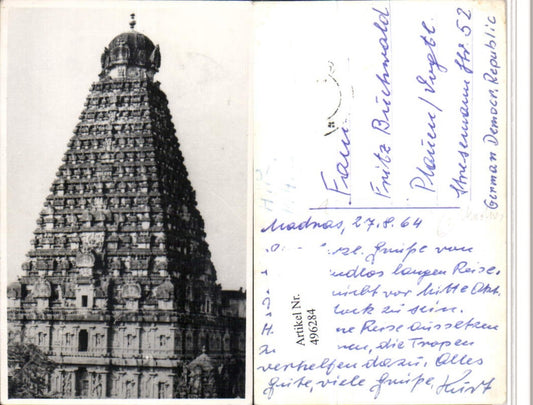 Frau
Fritz Buchwald
Plauen/Vogtl.
Stresemann Str. 52
German Democr. Republic
Madras, 27.8.64
Grüße von
langen Reise.
nicht vor Mitte Okt.
zu sein.
Reise aussetzen
die Tropen
verhelfen dazu. Alles
Gute, viele Grüße, Kurt
Artikel Nr.
496284